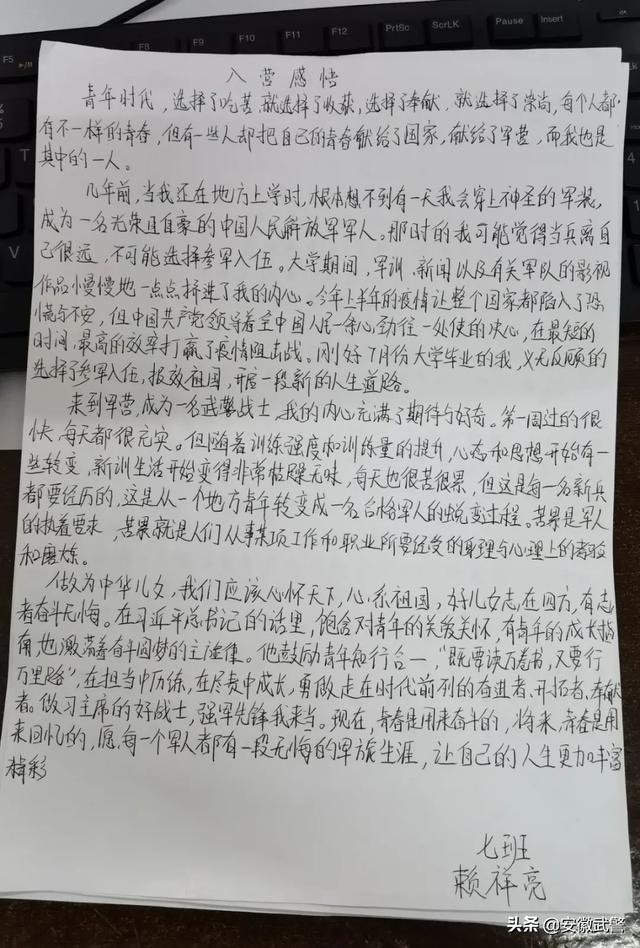 F5
PrtSc
ScrLK
Pause
Insert
入营感悟
青年时代，选择了吃苦就选择了收获，选择了奉献，就选择了崇尚，每个人都
有不一样的青春，但有一些人却把自己的青春献给了国家，献给了军营，而我也是
其中的一人。
几年前，当我还在地方上学时，根本想不到有一天我会穿上神圣的军装，
成为一名光荣且自豪的中国人民解放军军人。那时的我可能觉得当兵离自
己很远，不可能选择参军入伍。大学期间，军训、新闻以及有关军队的影视
作品慢慢地一点点挤进了我的内心。今年上半年的疫情让整个国家都陷入了恐
慌与不安，但中国共产党领导着全中国人民一条心劲往一处使的决心，在最短的
时间，最高的效率打赢了疫情阻击战。刚好7月份大学毕业的我，义无反顾的
选择了参军入伍，报效祖国，开启一段新的人生道路。
来到军营，成为一名武警战士，我的内心充满了期待与好奇。第一周过的很
快，每天都很充实。但随着训练强度和训练量的提升，心态和思想开始有一
些转变，新训生活开始变得非常枯燥无味，每天也很苦很累，但这是每一名新兵
都要经历的，这是从一个地方青年转变成一名合格军人的蜕变过程。苦累是军人
的执着要求，苦累就是人们从事某项工作和职业所要经受的身理与心理上的考验
和磨炼。
做为中华儿女，我们应该心怀天下，心系祖国，好儿女志在四方，有志
者奋斗无悔。在习近平总书记的话里，饱含对青年的关爱关怀，有青年的成长指
南，也激荡着奋斗圆梦的主旋律。他鼓励青年知行合一，“既要读万卷书，又要行
万里路”，在担当中历练，在尽责中成长，勇做走在时代前列的奋进者、开拓者、奉献
者。做习主席的好战士，强军先锋我来当。现在，青春是用来奋斗的，将来，青春是用
来回忆的，愿每一个军人都有一段无悔的军旅生涯，让自己的人生更加丰富
精彩
七班
赖祥亮
头条@安徽武警